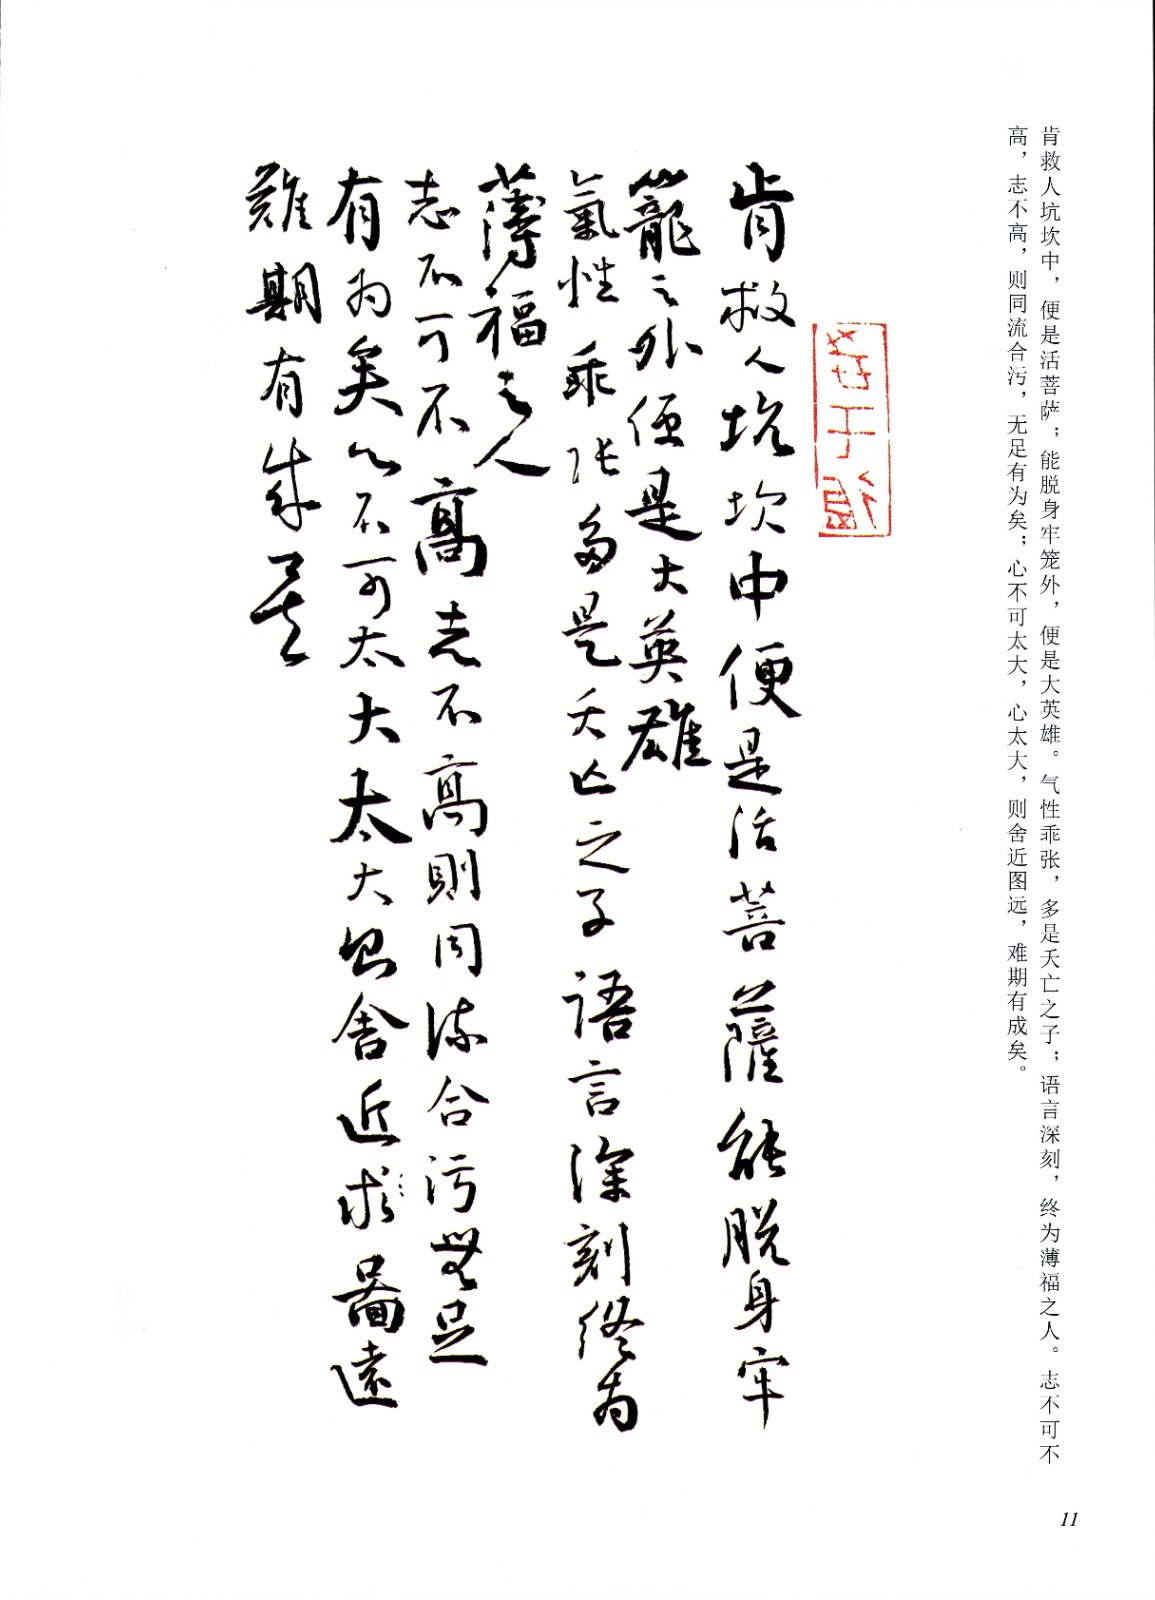 肯救人坑坎中，便是活菩萨；能脱身牢笼外，便是大英雄。气性乖张，多是夭亡之子；语言深刻，终为薄福之人。志不可不
高，志不高，则同流合污，无足有为矣；心不可太大，心太大，则舍近图远，难期有成矣。
肯救人坑坎中便是活菩薩能脱身牢
籠之外便是大英雄
氣性乖張多是夭亡之子語言深刻終为
薄福之人
志不可不高志不高則同流合污無足
有为矣心不可太大太大則舍近求圖遠
難期有成矣
11